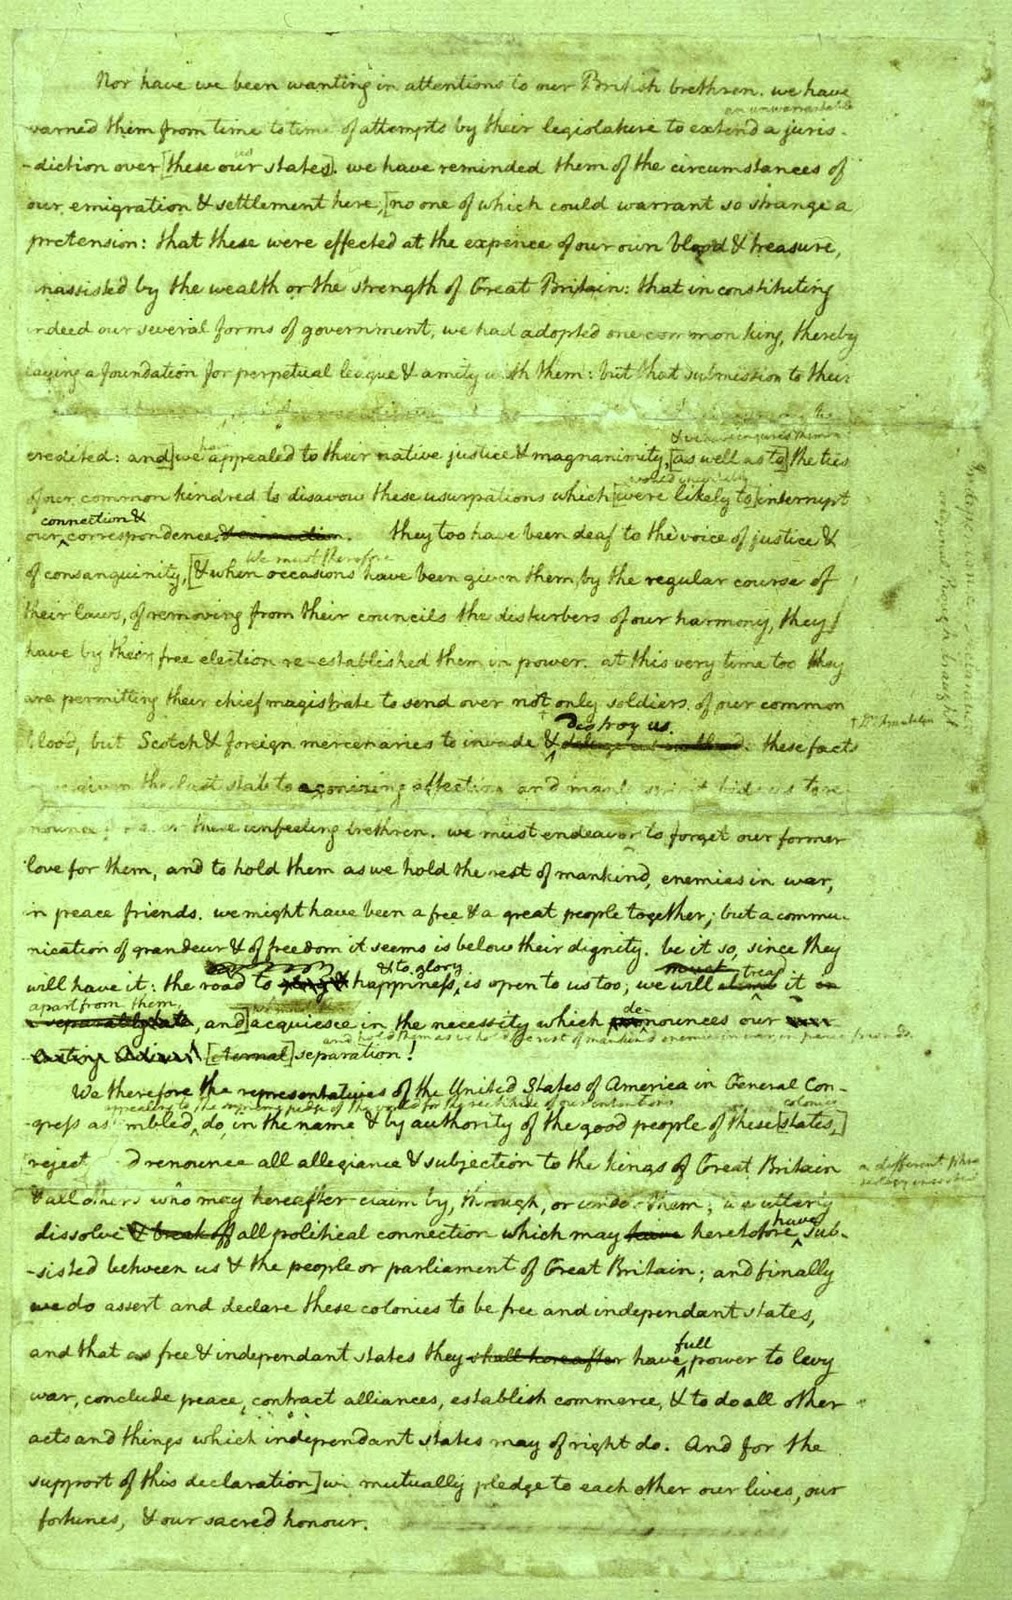 Nor have we been wanting in attentions to our British brethren. we have
an unwarrantable
warned them from time to time of attempts by their legislature to extend a juris-
us
-diction over [these our states]. we have reminded them of the circumstances of
our emigration & settlement here, [no one of which could warrant so strange a
pretension: that these were effected at the expence of our own blood & treasure,
unassisted by the wealth or the strength of Great Britain: that in constituting
indeed our several forms of government, we had adopted one common king, thereby
laying a foundation for perpetual league & amity with them: but that submission to their
the
have & we have conjured them by
credited: and] we appealed to their native justice & magnanimity, [as well as to] the ties
would inevitably
of our common kindred to disavow these usurpations which [were likely to] interrupt
connection &
our correspondence & connection. they too have been deaf to the voice of justice &
We must therefore
of consanguinity, [& when occasions have been given them, by the regular course of
their laws, of removing from their councils the disturbers of our harmony, they
have by their free election re-established them in power. at this very time too they
are permitting their chief magistrate to send over not only soldiers of our common
destroy us.
blood, but Scotch & foreign mercenaries to invade & deluge us in blood. these facts
† Dr. Franklin
given the last stab to agonizing affection and manly spirit bids us to re
nounce these unfeeling brethren. we must endeavor to forget our former
love for them, and to hold them as we hold the rest of mankind, enemies in war,
in peace friends. we might have been a free & a great people together; but a commu-
nication of grandeur & of freedom it seems is below their dignity. be it so, since they
& to glory must tread
will have it: the road to glory & happiness, is open to us too; we will climb it in
apart from them, de-
a separately state, and] acquiesce in the necessity which pronounces our
and hold them as we hold the rest of mankind enemies in war, in peace friends.
everlasting Adieu! [eternal] separation!
We therefore the representatives of the United States of America in General Con-
appealing to the supreme judge of the world for the rectitude of our intentions colonies
-gress assembled, do, in the name & by authority of the good people of these [states,]
reject and renounce all allegiance & subjection to the kings of Great Britain
a different phra
& all others who may hereafter claim by, through, or under them; we utterly
have
dissolve & break off all political connection which may have heretofore sub-
-sisted between us & the people or parliament of Great Britain; and finally
we do assert and declare these colonies to be free and independant states,
full
and that as free & independant states they shall hereafter have power to levy
war, conclude peace, contract alliances, establish commerce, & to do all other
acts and things which independant states may of right do. And for the
support of this declaration] we mutually pledge to each other our lives, our
fortunes, & our sacred honour.
Independence Declaration
original Rough draught